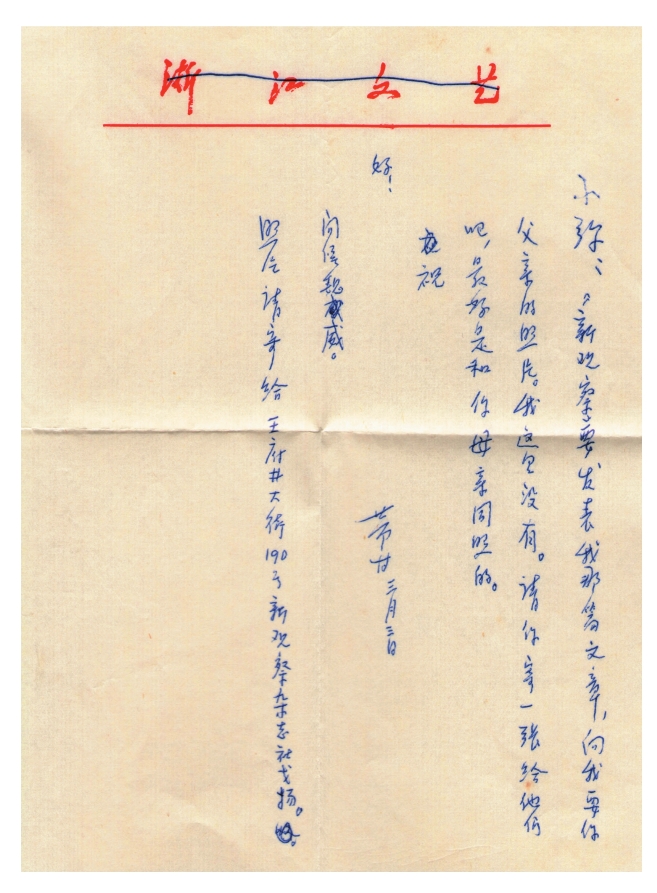 浙江文艺
小弥：《新观察》要发表我那篇文章，向我要你
父亲的照片。我这里没有。请你寄一张给他们
吧，最好是和你母亲同照的。
祝
好！
芾甘 三月三日
问候魏威。
照片请寄给王府井大街190号新观察杂志社戈扬。